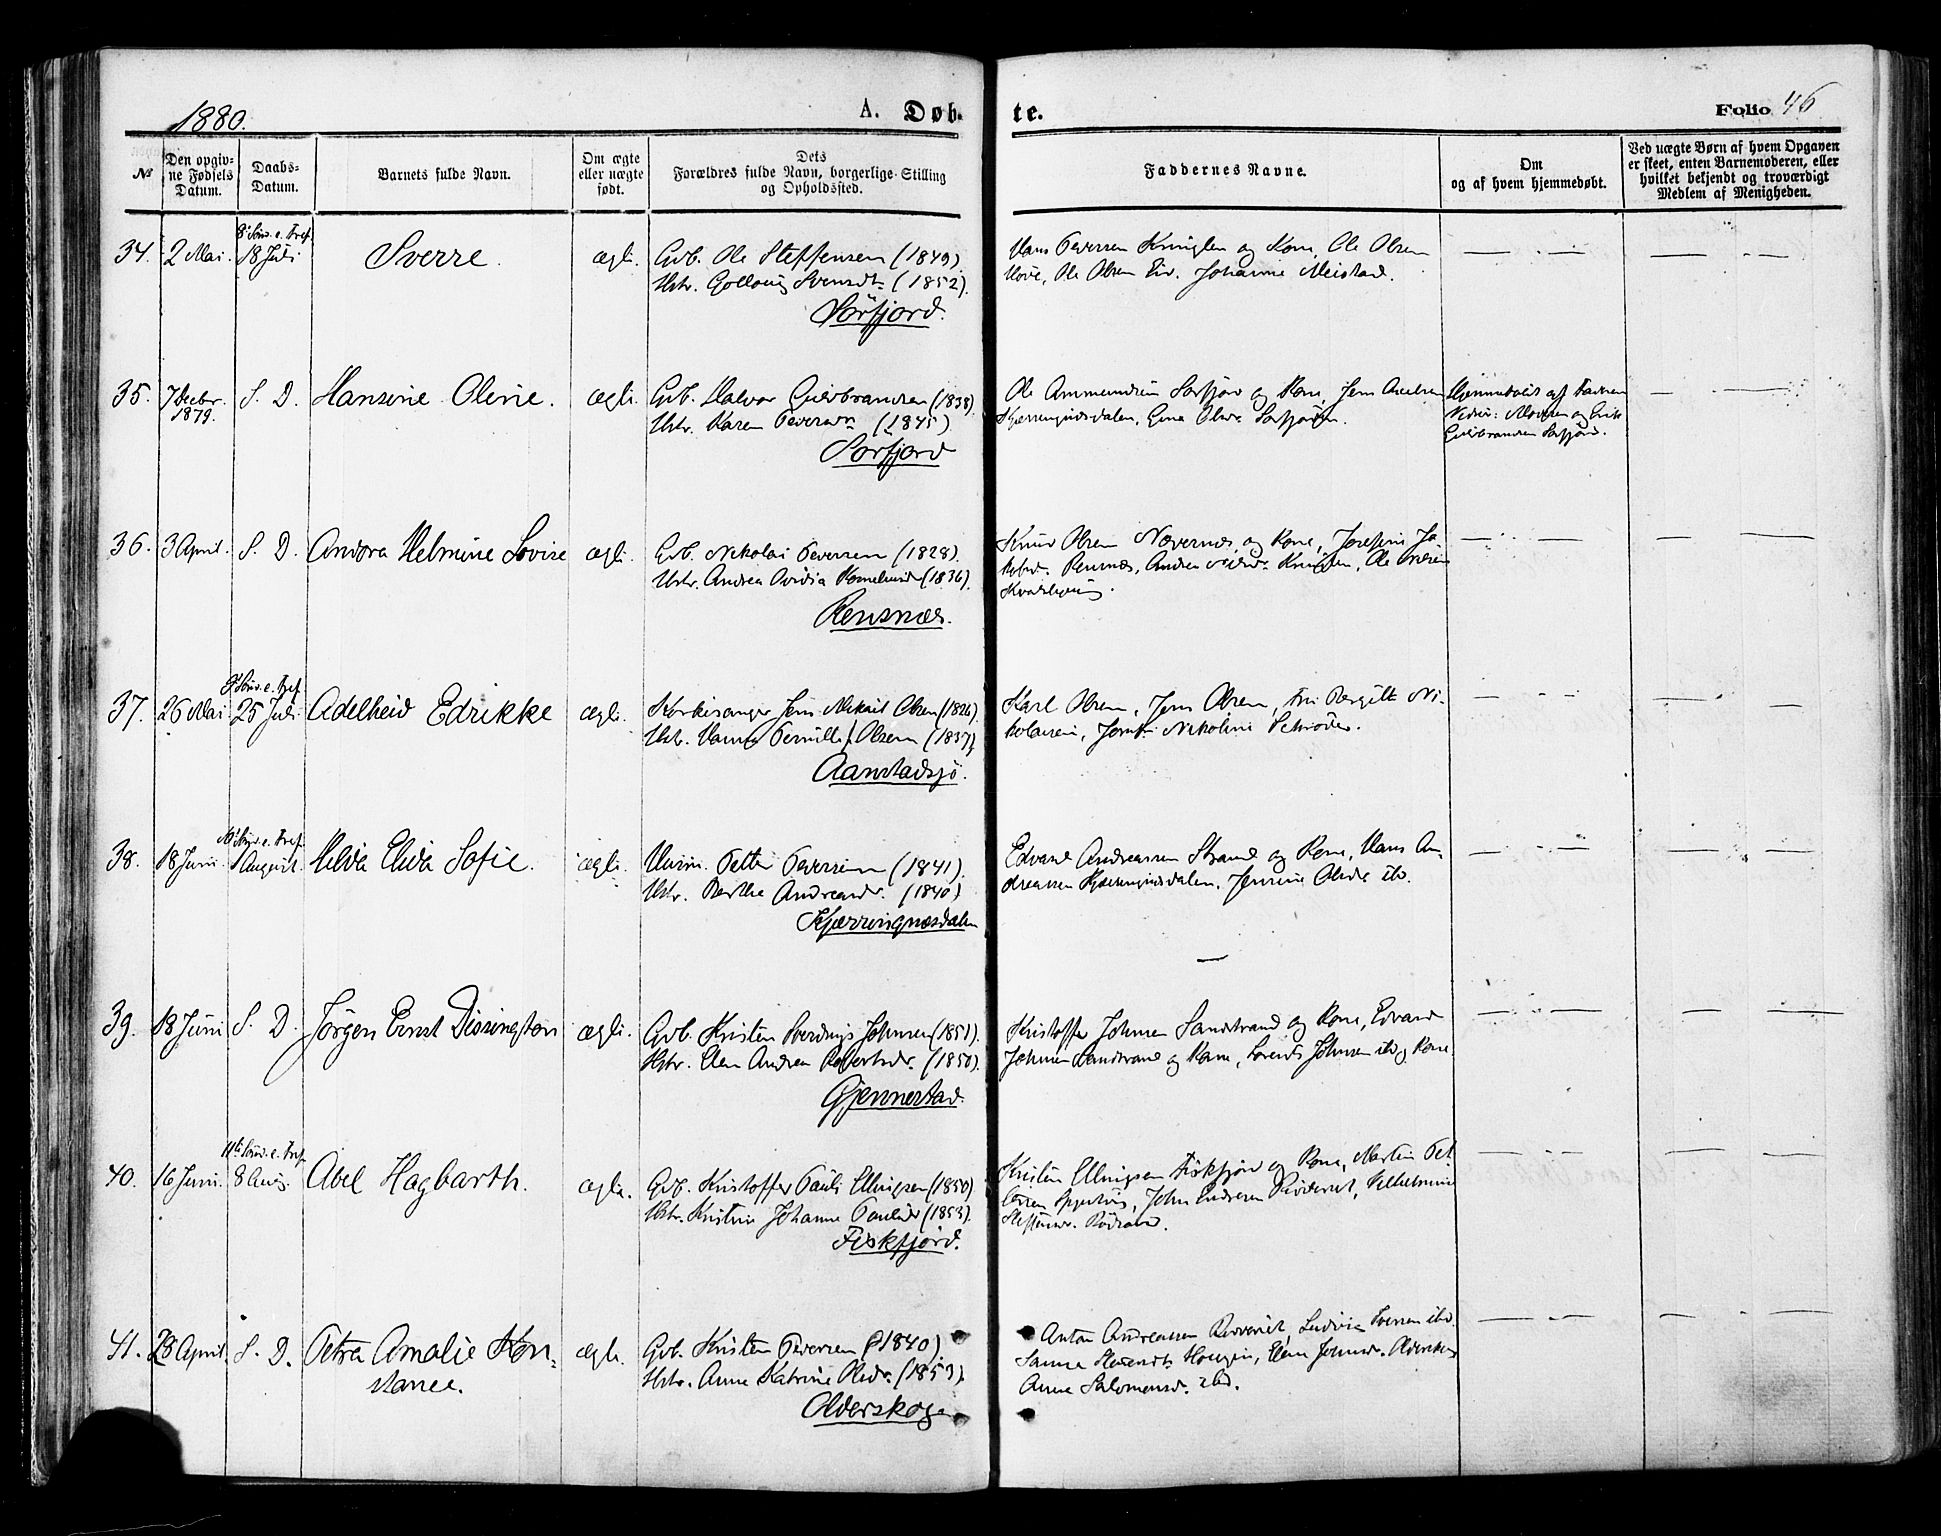 1880.
A. Døb-
te.
Folio 46
№
Den opgiv-
ne Fødsels
Datum.
Daabs-
Datum.
Barnets fulde Navn.
Om ægte
eller uægte
født.
Dets
Forældres fulde Navn, borgerlige Stilling
og Opholdssted.
Faddernes Navne.
Om
og af hvem hjemmedøbt.
Ved uægte Børn af hvem Opgaven
er skeet, enten Barnemoderen, eller
hvilket bekjendt og troværdigt
Medlem af Menigheden.
34. 2 Mai.
8de Sønd. e. Tref.
18 Juli
Sverre.
ægte.
Gdb. Ole Steffensen (1849).
Hstr. Svensdtr (1852).
Sörfjord.
Hans Pedersen Kringlen og Kone, Ole Olsen
Hove, Ole Olsen Johanne Meistad.
35. 7 Decbr.
1879.
S. D.
Hansine Oline.
ægte.
Gdb. Halvor Gulbrandsen (1838)
Hstr. Karen Pedersdtr (1845).
Sörfjord
Ole Ammundsen Sörfjord og Kone, Jens
Olsdr. Sörfjorden.
Hjemmedøbt af
og Erik
Gulbrandsen Sörfjord.
36. 3 April.
S. D.
Andora Helmine Lovise
ægte.
Gdb. Nikolai Pedersen (1828).
Hstr. Andrea Ovidia (1836).
Rensnæs.
Knud Olsen Nævernes og Kone, Josefine Ja-
kobsd. Rensnæs, Andrea Kringlen, Ole
37. 26 Mai
9de Sønd. e. Tref.
25 Juli
Adelheid Edrikke
ægte.
Kirkesanger Jens Mikail Olsen (1824)
Hstr. Hanna Pernille Olsen (1837)
Aanstadsjö.
Karl Olsen, Jens Olsen, Bergitte Ni-
kolaisen, Jomfr. Nikoline Schrøder.
38. 18 Juni
10de Sønd. e. Tref.
1 August.
Hilda Elida Sofie.
ægte.
Petter Pedersen (1841).
Hstr. Berthe Andreasdr. (1840)
Kjærringnæsdalen
Edvard Andreassen Strand og Kone, Hans An-
dreassen Kjærringnæsdalen, Jensine Olsdr ibd.
39. 18 Juni
S. D.
Jörgen Ernst Dissington
ægte.
Gdb. Kristen Johnsen (1851).
Hstr. Elen Andrea Robertsdr. (1850).
Gjennestad.
Kristoffer Johnsen Sandstrand og Kone, Edvard
Johnsen Sandstrand og Kone, Lorents Johnsen ibd og Kone.
40. 16 Juni.
11te Sønd. e. Tref.
8 Aug.
Abel Hagbarth.
ægte.
Gdb. Kristoffer Pauli Ellingsen (1850)
Hstr. Kristine Johanna Paulsdr (1853).
Fiskfjord.
Kristen Ellingsen Fiskfjord og Kone, Martin Pet-
tersen John Endresen Vilhelmine
Steffensdr.
41. 28 April.
S. D.
Petra Amalie Kon-
stance.
ægte.
Gdb. Kristen Pedersen (1840).
Hstr. Anne Katrine Olsdr. (1853).
Olderskog.
Anton Andreassen Ludvig Iversen ibd.
Sanna Haugen, Elen Johnsdr. Olderskog
Anne Salomonsd. ibd.